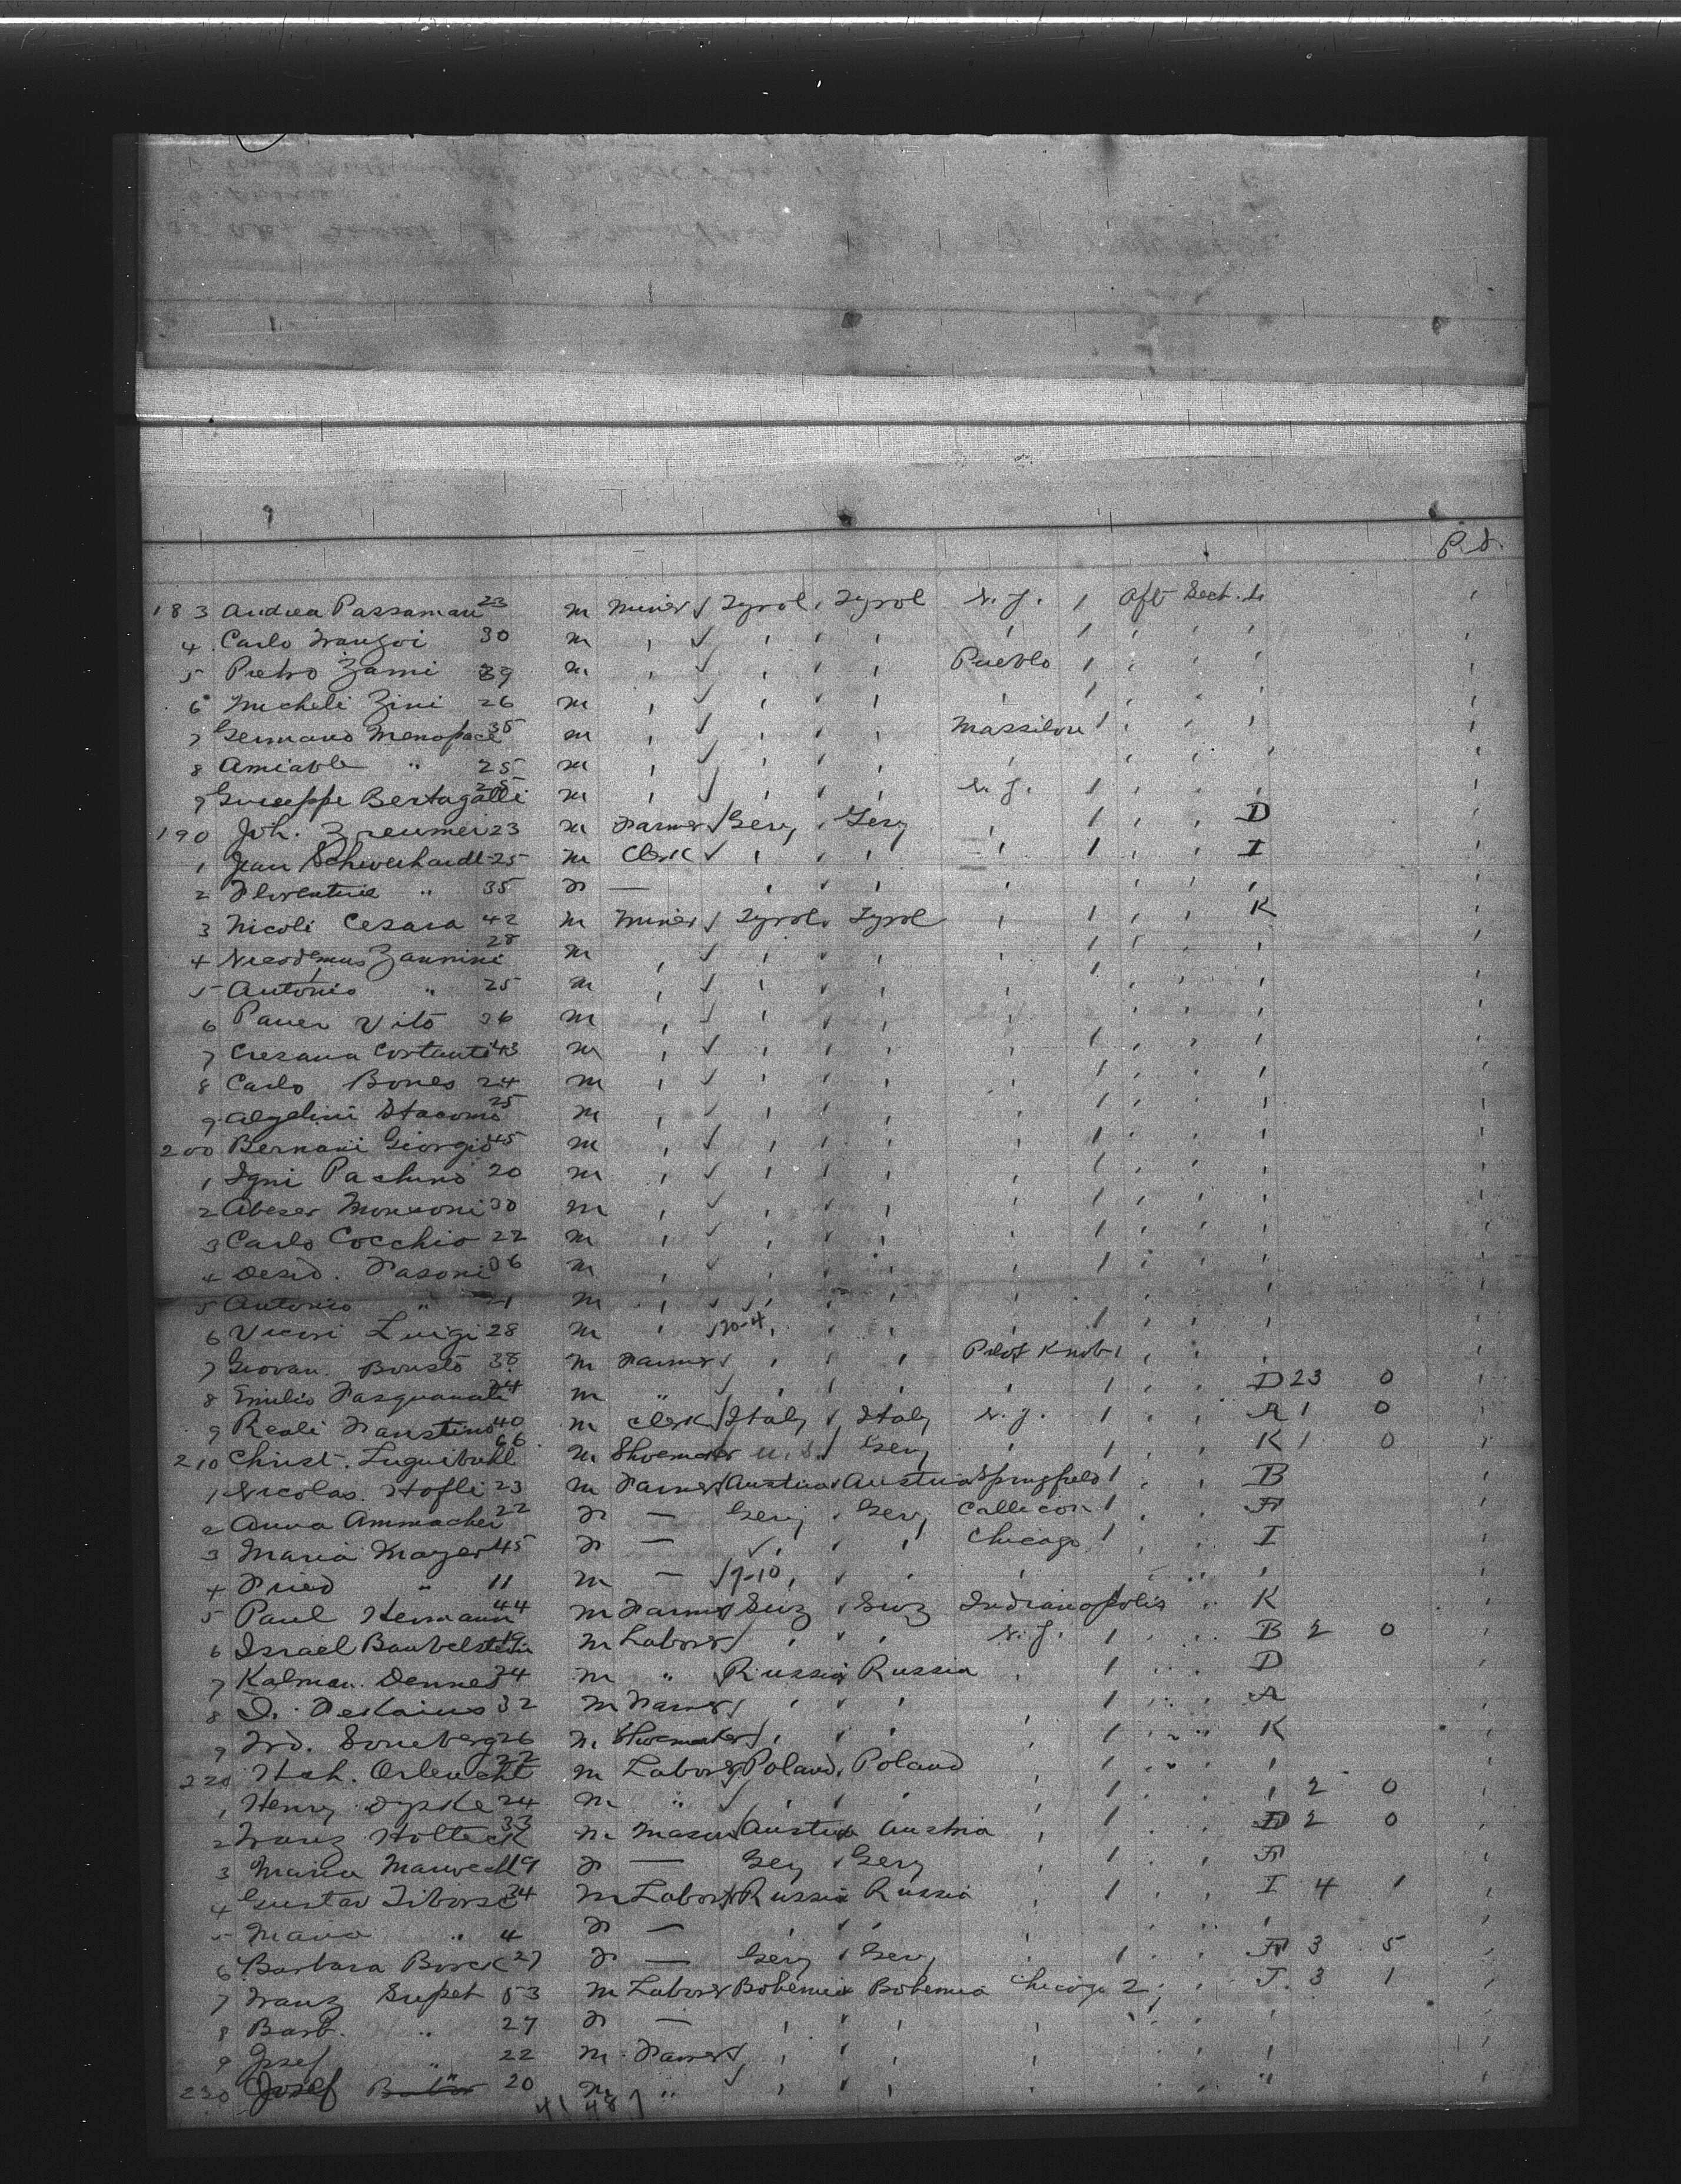 P.S.
183 Andrea Passaman 23 m Miner √ Tyrol , Tyrol N. J. 1 Aft Sect. D.
4 Carlo 30 m , √ , , , , 1 , , ,
5 Pietro Zanni 39 m , √ , , , Pueblo 1 , , ,
6 Micheli Zini 26 m , √ , , , , 1 , , ,
7 Germano Menapace 35 m , √ , , , Massilon 1 , , ,
8 Amiable " 25 m , √ , , , , , , ,
9 Guiseppe Bertagalli 25 m , √ , , , N. J. 1 , , ,
190 Joh. 23 m Farmer √ Gery , Gery , 1 , , D
1 Jean Schweihardt 25 m Clerk √ , , , , 1 , , I
2 Florentine " 35 F — , , , , , , ,
3 Nicoli Cesara 42 m Miner √ Tyrol , Tyrol , 1 , , K
4 Nicodemus Zannini 28 m , √ , , , , 1 , , ,
5 Antonio " 25 m , √ , , , , 1 , , ,
6 Paver Vito 36 m , √ , , , , , , ,
7 Cresana Costanti 43 m , √ , , , , 1 , , ,
8 Carlo Bones 24 m , √ , , , , 1 , , ,
9 Algelini 25 m , √ , , , , 1 , , ,
200 Bernani Giorgio 45 m , √ , , , , 1 , , ,
1 Igni Pachino 20 m , √ , , , , 1 , , ,
2 Abeser 30 m , √ , , , , 1 , , ,
3 Carlo Cocchio 22 m , √ , , , , 1 , , ,
4 Desid. Fasoni 36 m , √ , , , , 1 , , ,
5 Antonio " m , √ , , , , , , ,
6 Vicori Luigi 28 m , √ 20-4 , , , , 1 , , ,
7 Giovan. Bousto 38 m Farmer √ , , , Pilot Knob 1 , , ,
8 Emilio Pasquanati 24 m " √ , , , , 1 , , D 23 0
9 Reali Faustino 40 m Clerk √ Italy , Italy N. J. 1 , , A 1 0
210 Christ. Luguibuhl 66 m Shoemaker U. S. , Gery , 1 , , K 1 0
1 Nicolas. Hofli 23 m Farmer √ Austria , Austria Springfield 1 , , B
2 Anna Ammacher 22 F — Gery , Gery Callicon 1 , , F
3 Maria Mayer 45 F — √ , , , Chicago 1 , , I
4 Fried " 11 m — √ 9-10 , , , , , , ,
5 Paul Hermann 44 m Farmer √ Swz , Swz Indianapolis , K
6 Israel Baubelstein 19 m Labor √ , , , N. J. 1 , , B 2 0
7 Kalman. Dennes 34 m " √ Russia Russia , 1 , , D
8 32 m Farmer √ , , , , 1 , , A
9 Frd. Soneberg 26 m Shoemaker √ , , , , 1 , , K
220 Hch. 22 m Labor √ Poland , Poland , 1 , , ,
1 Henry Dyske 24 m " √ , , , , 1 , , , 2 0
2 Franz Holteck 33 m Mason √ Austria Austria , 1 , , D 2 0
3 Maria 19 F — Gery , Gery , 1 , , F
4 Gustav 34 m Labor √ Russia Russia , 1 , , I 4 1
5 Maria " 4 F — , , , , , , ,
6 Barbara Borck 27 F — Gery , Gery , 1 , , F 3 5
7 Franz Supet 53 m Labor √ Bohemia Bohemia Chicago 2 , , J. 3 1
8 Barb. " 27 F — , , , , , , ,
9 Josef " 22 m Farmer √ , , , , , , ,
230 Josef " 20 m " √ , , , , , , "
41 487